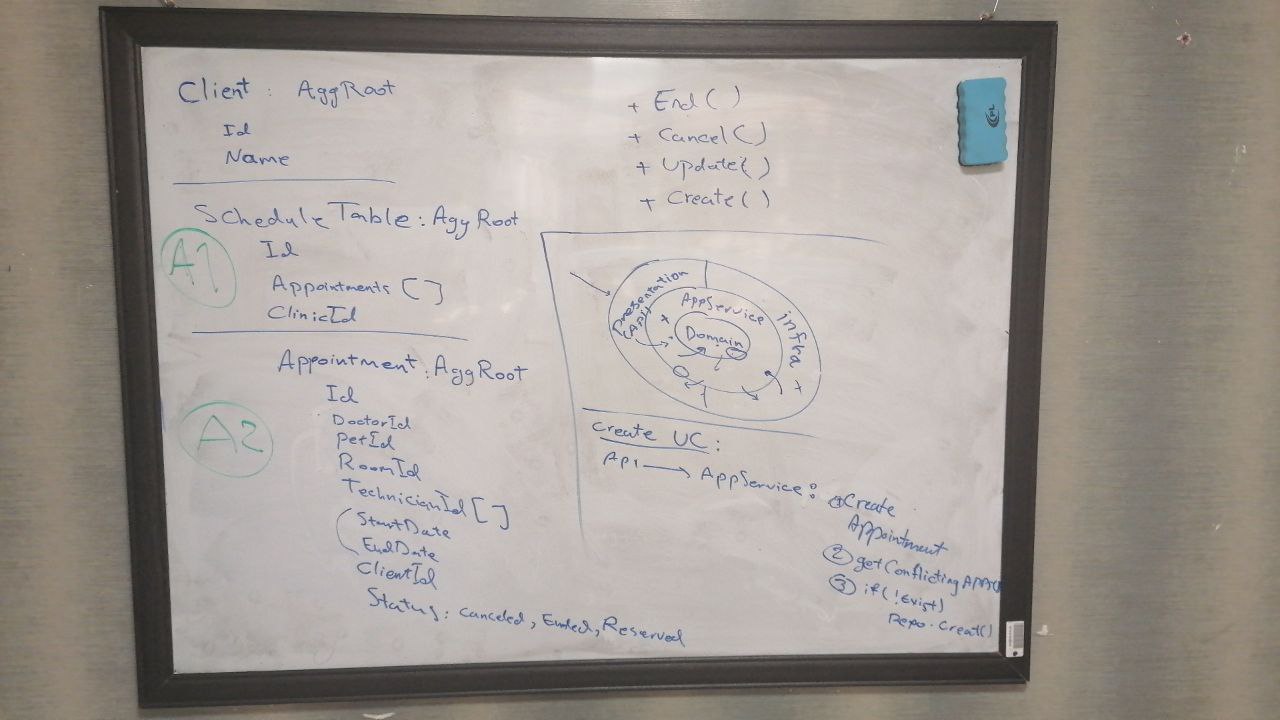 Client : AggRoot
Id
Name
Schedule Table : Agg Root
A1
Id
Appointments [ ]
ClinicId
Appointment : AggRoot
A2
Id
DoctorId
PetId
RoomId
TechnicianId [ ]
StartDate
EndDate
ClientId
Status : canceled, Ended, Reserved
+ End ( )
+ Cancel ( )
+ Update ( )
+ Create ( )
Presentation
(Api)
AppService
infra
Domain
Create UC :
Api → AppService :
① Create
Appointment
② getConflictingAPPs()
③ if ( !Exist)
Repo . Creat()